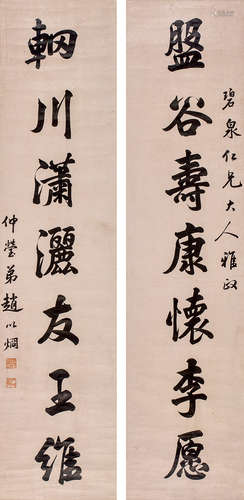 碧泉仁兄大人雅政
盤谷壽康懷李愿
輞川瀟灑友王維
仲瑩弟趙以炯